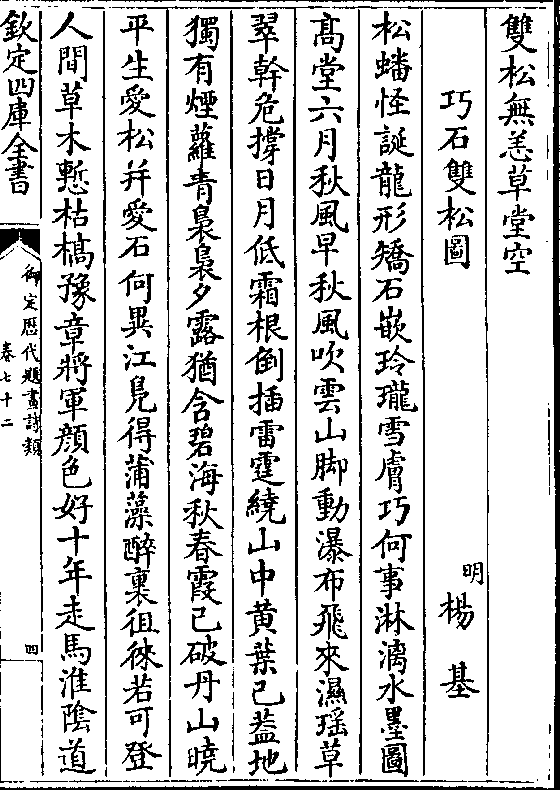 雙松無恙草堂空
巧石雙松圖
明 楊基
松蟠怪誕龍形矯石嵌玲瓏雪膚巧何事淋漓水墨圖
髙堂六月秋風早秋風吹雲山脚動瀑布飛來濕瑶草
翠幹危撐日月低霜根倒插雷霆繞山中黄葉已葢地
獨有煙蘿青裊裊夕露猶含碧海秋春霞已破丹山曉
平生愛松幷愛石何異江鳬得蒲藻醉裏徂徠若可登
人間草木慙枯槁豫章將軍顔色好十年走馬淮隂道
欽定四庫全書
御定歴代題畫詩類
卷七十二
四